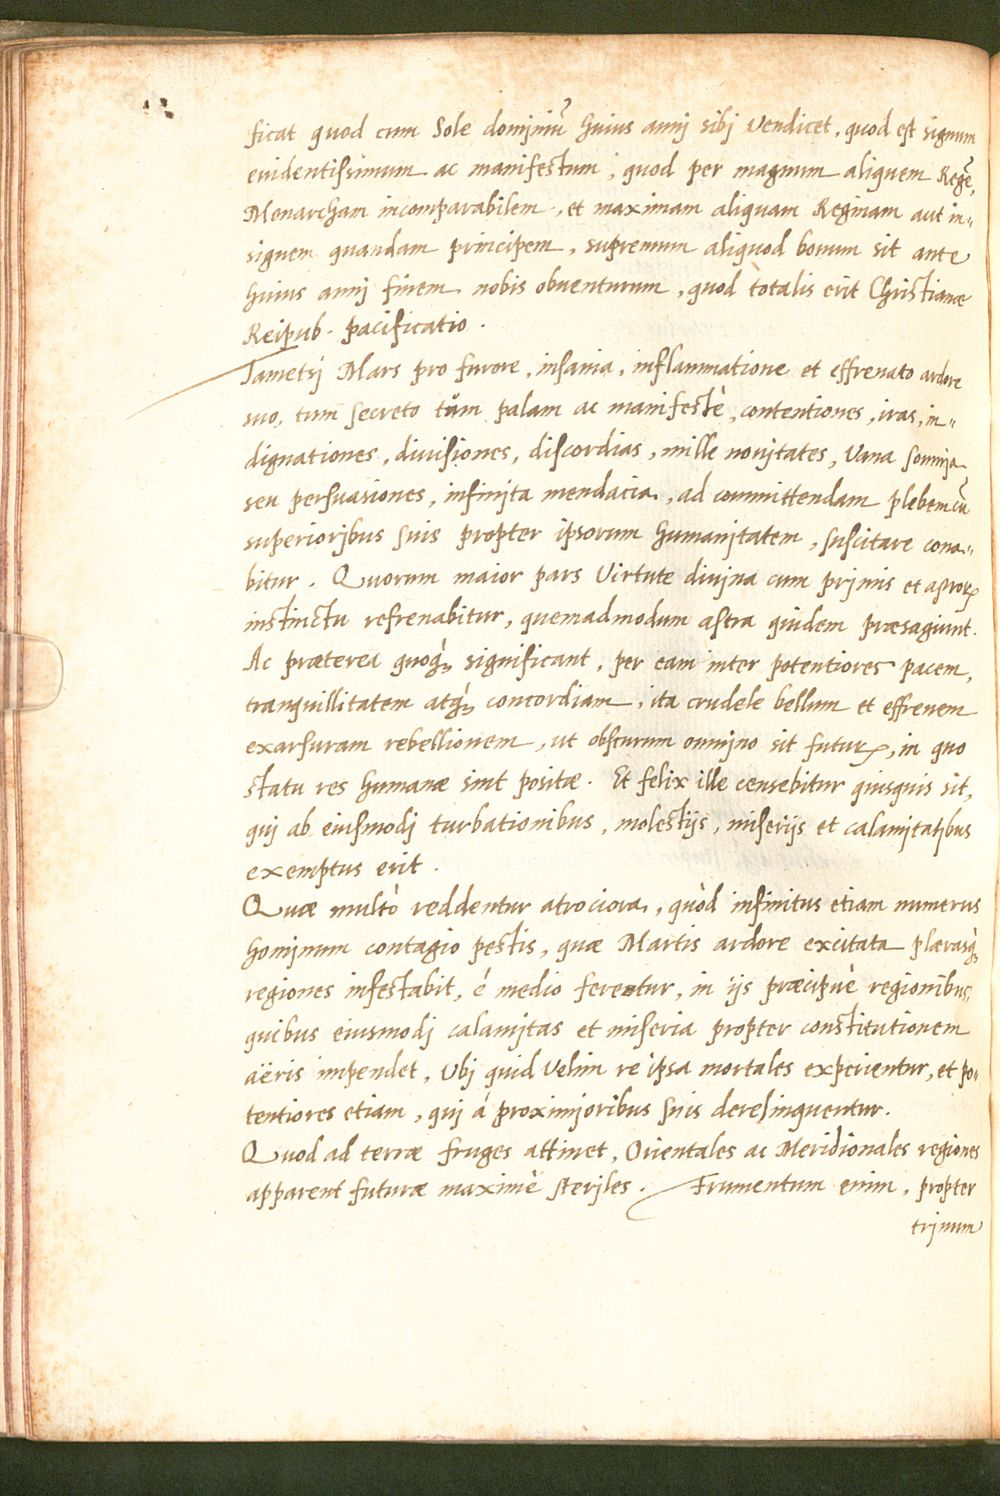 ficat quod cum Sole dominiũ huius annj sibj vendicet, quod est signum
euidentissimum ac manifestum, quod per magnum aliquem Regẽ,
Monarcham incomparabilem, et maximam aliquam Reginam aut in„
signem quandam principem, supremum aliquod bonum sit ante
huius annj finem nobis obuenturum, quod totalis erit Christianæ
Reipub. pacificatio.
Tametsj Mars pro furore, insania, inflammatione et effrenato ardore
suo, tum secreto tum palam ac manifestè, contentiones, iras, in„
dignationes, diuisiones, discordias, mille nouitates, Vana somnja
seu persuasiones, infinjta mendacia, ad committendam plebem cũ
superiorjbus suis propter ipsorum humanjtatem, suscitare cona„
bitur. Quorum maior pars Virtute diujna cum prjmis et astrorꝝ
instinctu refrenabitur, quemadmodum astra qujdem præsagiunt.
Ac præterea quoqꝫ significant, per eam inter potentiores pacem,
tranquillitatem atqꝫ concordiam, ita crudele bellum et effrenem
exarsuram rebellionem, ut obscurum omnjno sit futurꝝ, in quo
statu res humanæ sint positæ. Et felix ille censebitur quisquis sit,
quj ab eiusmodj turbationibus, molestijs, miserijs et calamjtatjbus
exemptus erit.
Quæ multò reddentur atrociora, quòd infinitus etiam numerus
homjnum contagio pestis, quæ Martis ardore excitata plærasqꝫ
regiones infestabit, é medio ferentur, in ijs præcipuè regionibus,
quibus eiusmodj calamjtas et miseria propter constitutionem
aëris impendet, Vbj quid Velim re ipsa mortales experientur, et po„
tentiores etiam, quj á proximjoribus suis derelinquentur.
Quod ad terræ fruges attinet, Orientales ac Meridionales regiones
apparent futuræ maximè sterjles. Frumentum enim, propter
trjnum